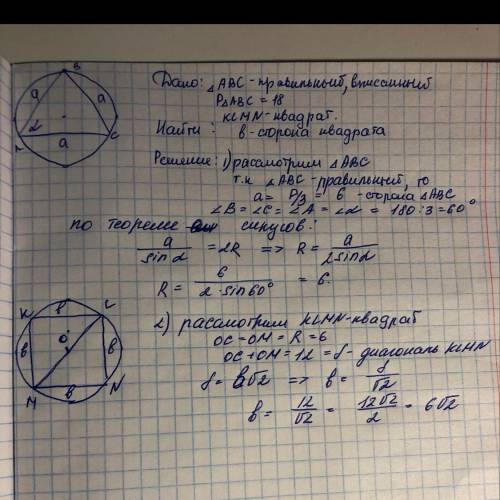 Дано: △ABC - правильный, вписанный
P△ABC = 18
KLMN - квадрат.
Найти: в - сторона квадрата
Решение: 1) рассмотрим △ABC
т.к △ABC - правильный, то
a = P/3 = 6 - сторона △ABC
∠B = ∠C = ∠A = ∠α = 180:3 = 60°
по теореме синусов:
a/sinα = 2R => R = a/2sinα
R = 6/2·sin60° = 6.
2) рассмотрим KLMN - квадрат
OC = OM = R = 6
OC + OM = 12 = f - диагональ KLMN
f = в√2 => в = f/√2
в = 12/√2 = 12√2/2 = 6√2
B
a
a
α
C
a
K
в
L
в
O
в
M
в
N